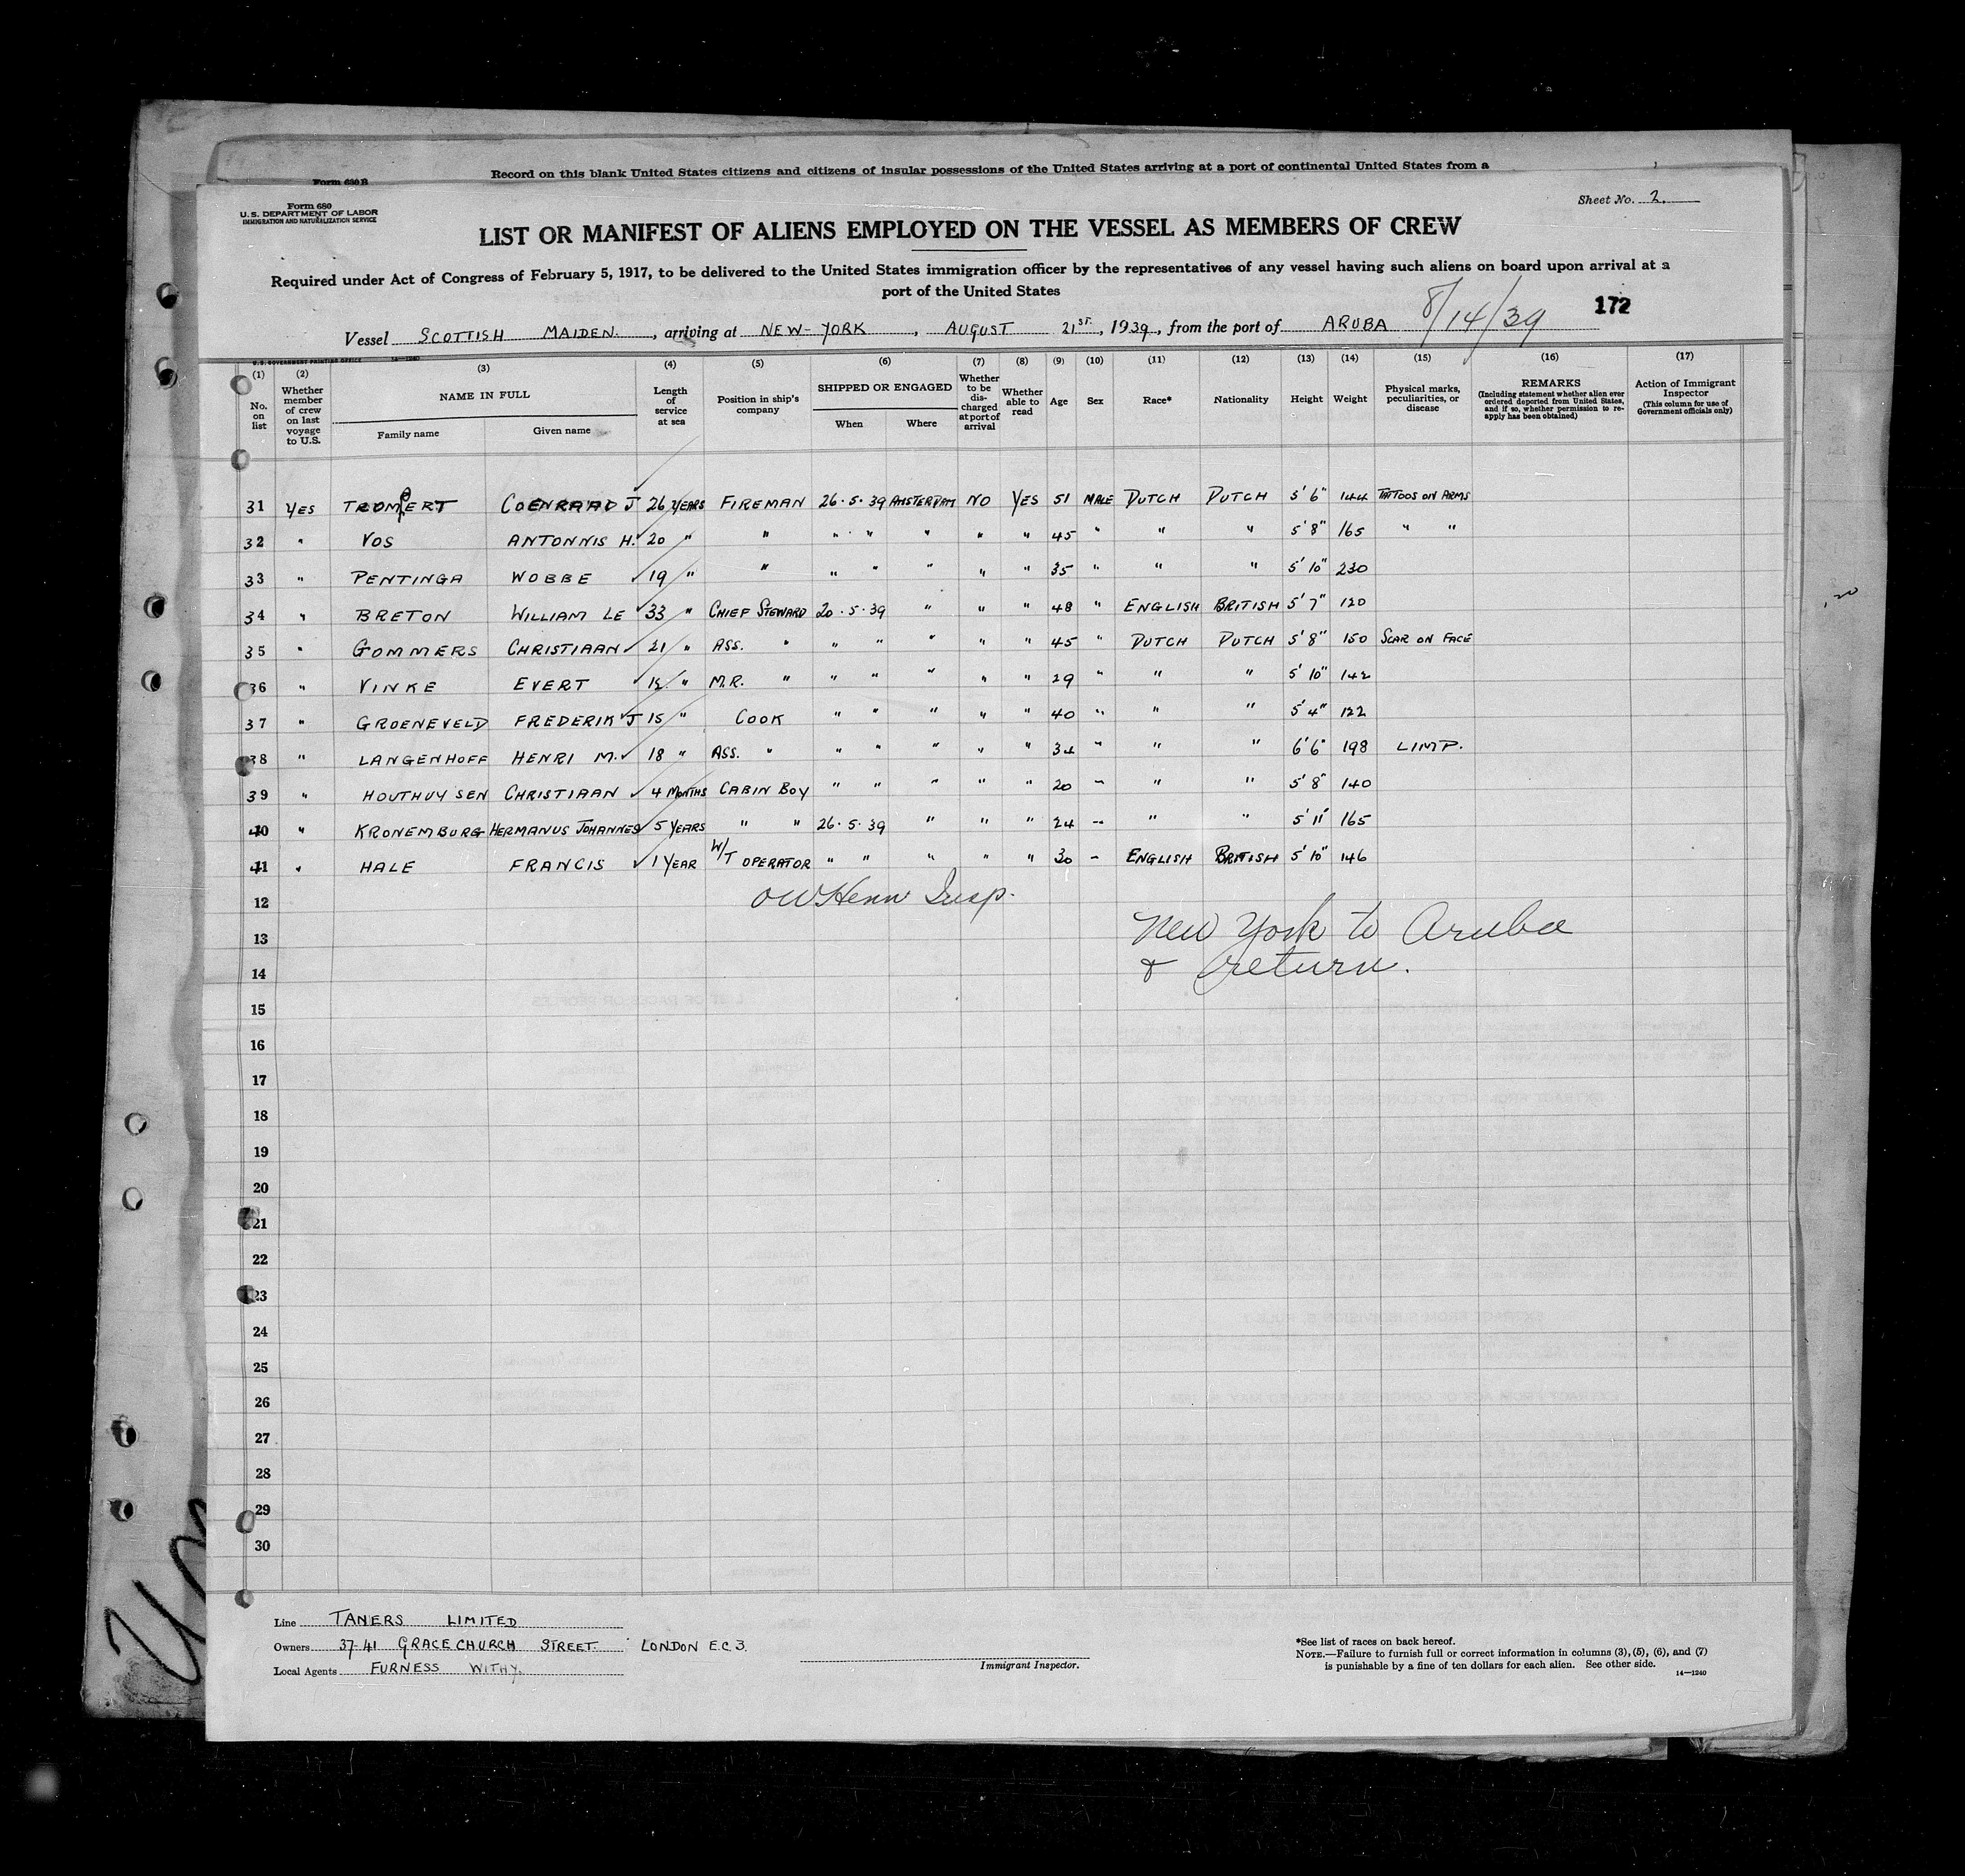 Form 630 B
Record on this blank United States citizens and citizens of insular possessions of the United States arriving at a port of continental United States from a
Form 680
U.S. DEPARTMENT OF LABOR
IMMIGRATION AND NATURALIZATION SERVICE
Sheet No. 2.
LIST OR MANIFEST OF ALIENS EMPLOYED ON THE VESSEL AS MEMBERS OF CREW
Required under Act of Congress of February 5, 1917, to be delivered to the United States immigration officer by the representatives of any vessel having such aliens on board upon arrival at a
port of the United States
8/14/39 172
Vessel SCOTTISH MAIDEN. , arriving at NEW-YORK , AUGUST 21ST. , 1939, from the port of ARUBA
U. S. GOVERNMENT PRINTING OFFICE 14—1240
(1) No. on list
(2) Whether member of crew on last voyage to U.S.
(3) NAME IN FULL Family name Given name
(4) Length of service at sea
(5) Position in ship's company
(6) SHIPPED OR ENGAGED When Where
(7) Whether to be dis-charged at port of arrival
(8) Whether able to read
(9) Age
(10) Sex
(11) Race*
(12) Nationality
(13) Height
(14) Weight
(15) Physical marks, peculiarities, or disease
(16) REMARKS (Including statement whether alien ever ordered deported from United States, and if so, whether permission to re-apply has been obtained)
(17) Action of Immigrant Inspector (This column for use of Government officials only)
31 YES TROMPERT COENRAAD J 26 YEARS FIREMAN 26.5.39 AMSTERDAM NO YES 51 MALE DUTCH DUTCH 5'6" 144 TATTOOS ON ARMS
32 " VOS ANTONNIS H. 20 " " " " " " " 45 " " " 5'8" 165 " "
33 " PENTINGA WOBBE 19 " " " " " " " 35 " " " 5'10" 230
34 " BRETON WILLIAM LE 33 " CHIEF STEWARD 20.5.39 " " " 48 " ENGLISH BRITISH 5'7" 120
35 " GOMMERS CHRISTIAAN 21 " ASS. " " " " " " 45 " DUTCH DUTCH 5'8" 150 SCAR ON FACE
36 " VINKE EVERT " M.R. " " " " " " 29 " " " 5'10" 142
37 " GROENEVELD FREDERIK J 15 " COOK " " " " " 40 " " " 5'4" 122
38 " LANGENHOFF HENRI M. 18 " ASS. " " " " " " 34 " " " 6'6" 198 LIMP.
39 " HOUTHUYSEN CHRISTIAAN 4 MONTHS CABIN BOY " " " " " 20 " " " 5'8" 140
40 " KRONEMBURG HERMANUS JOHANNES 5 YEARS " " 26.5.39 " " " 24 " " " 5'11" 165
41 " HALE FRANCIS 1 YEAR W/T OPERATOR " " " " " 30 " ENGLISH BRITISH 5'10" 146
12 OW Henn Insp.
13 New York to Aruba
14 & return.
15
16
17
18
19
20
21
22
23
24
25
26
27
28
29
30
Line TANERS LIMITED
Owners 37-41 GRACECHURCH STREET. LONDON E.C 3.
Local Agents FURNESS WITHY.
Immigrant Inspector.
*See list of races on back hereof.
NOTE.—Failure to furnish full or correct information in columns (3), (5), (6), and (7)
is punishable by a fine of ten dollars for each alien. See other side.
14—1240